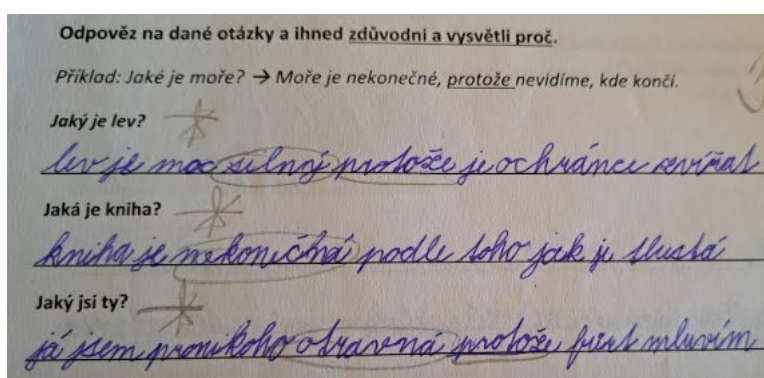 Odpověz na dané otázky a ihned zdůvodni a vysvětli proč.
Příklad: Jaké je moře? → Moře je nekonečné, protože nevidíme, kde končí.
Jaký je lev?
lev je moc silný protože je ochránce zvířat
Jaká je kniha?
kniha je nekonečná podle toho jak je tlustá
Jaký jsi ty?
já jsem pronikoho otravná protože furt mluvím